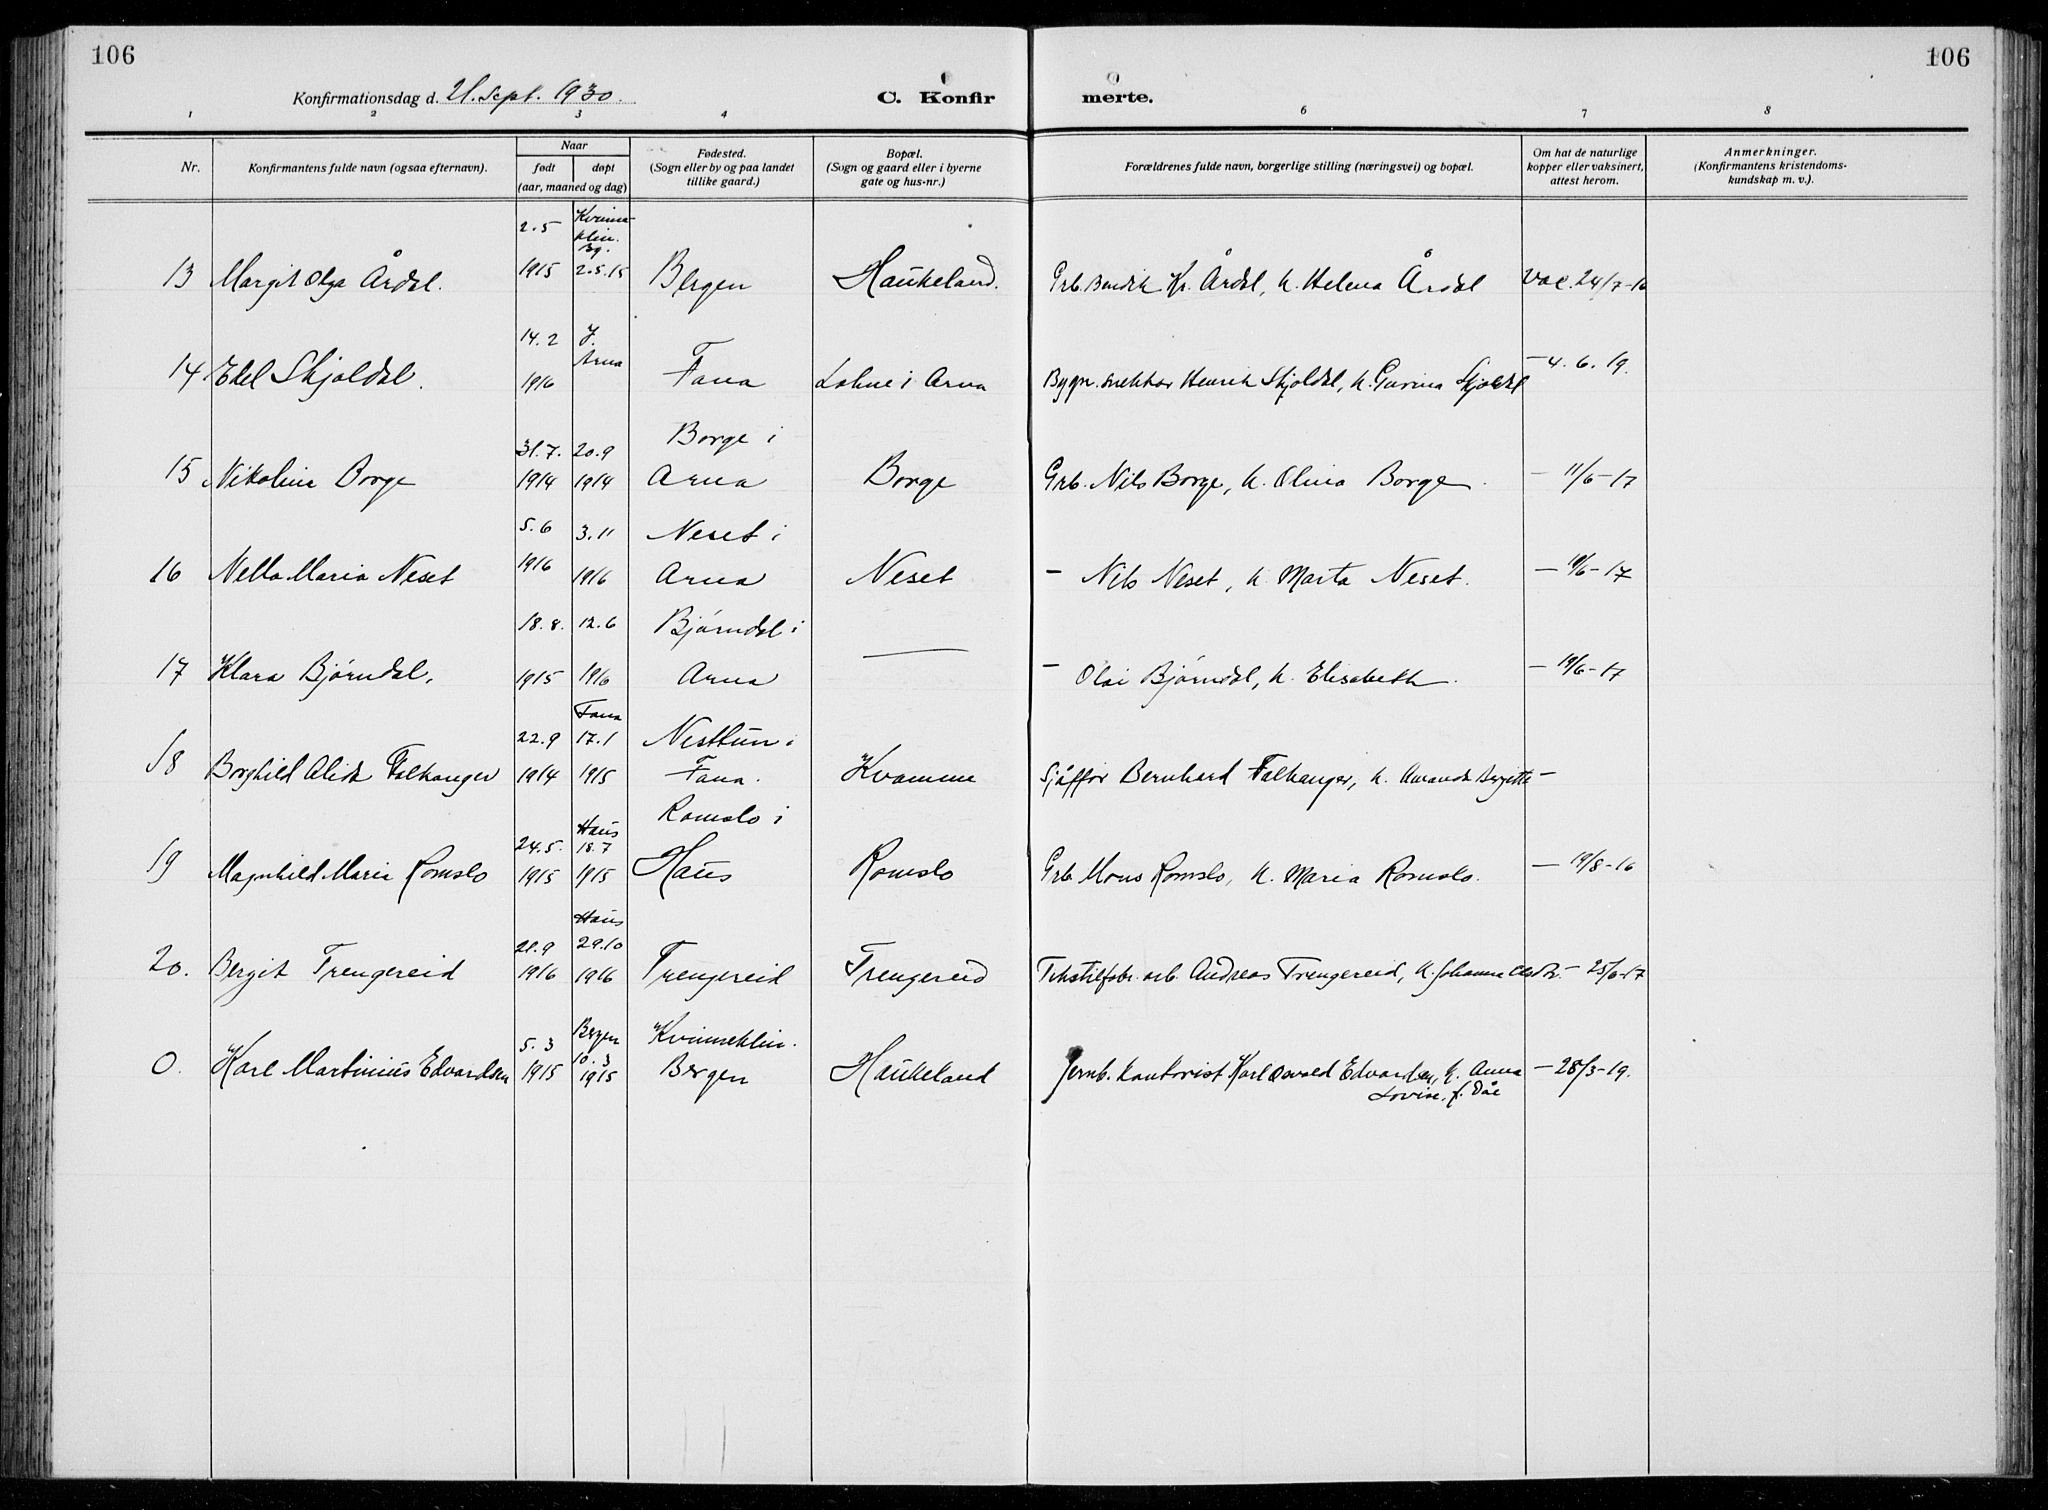 106
106
Konfirmationsdag d. 21. Sept. 1930.
C. Konfir
merte.
1 2 3 4 6 7 8
Nr.
Konfirmantens fulde navn (ogsaa efternavn).
Naar
født døpt
(aar, maaned og dag)
Fødested.
(Sogn eller by og paa landet
tillike gaard.)
Bopæl.
(Sogn og gaard eller i byerne
gate og hus-nr.)
Forældrenes fulde navn, borgerlige stilling (næringsvei) og bopæl.
Om hat de naturlige
kopper eller vaksinert,
attest herom.
Anmerkninger.
(Konfirmantens kristendoms-
kundskap m. v.).
2.5 Kvinne
klin.
Bg.
13 Margit Olga Årdal. 1915 2.5.15 Bergen Haukeland. Grb. Bendik Kr. Årdal, h. Helena Årdal Vac. 24/7-16
14.2 Y.
Arna
14 Edel Skjoldal. 1916 Fana Lohne i Arna Bygn. snekker Henrik Skjoldal, h. Gurina Skjoldal – 4.6.19.
31.7. 20.9 Borge i
15 Nikoline Borge 1914 1914 Arna Borge Grb. Nils Borge, h. Olina Borge. – 11/6-17
5.6 3.11 Neset i
16 Nella Maria Neset 1916 1916 Arna Neset – Nils Neset, h. Marta Neset. – 19/6-17
18.8. 12.6 Bjørndal i
17 Klara Bjørndal. 1915 1916 Arna — – Olai Bjørndal, h. Elisabeth. – 19/6-17
Fana
22.9 17.1 Nesttun i
18 Borghild Alida Falkanger 1914 1915 Fana. Kvamme Sjåffør Bernhard Falkanger, h. Amanda Bergitte –
Haus Romslo i
24.5. 18.7
19 Magnhild Maria Romslo 1915 1915 Haus Romslo Grb. Mons Romslo, h. Maria Romslo. – 19/8-16
Haus
21.9 29.10
20. Bergit Trengereid 1916 1916 Trengereid Trengereid Tekstilfabr. arb. Andreas Trengereid, h. Johanna Olsdtr. – 25/6-17
5.3 Bergen Kvinneklin.
10.3
0. Karl Martinius Edvardsen 1915 1915 Bergen Haukeland Jernb. kontorist Karl Osvald Edvardsen, h. Anna – 28/3-19.
Lovise, f. Dåe